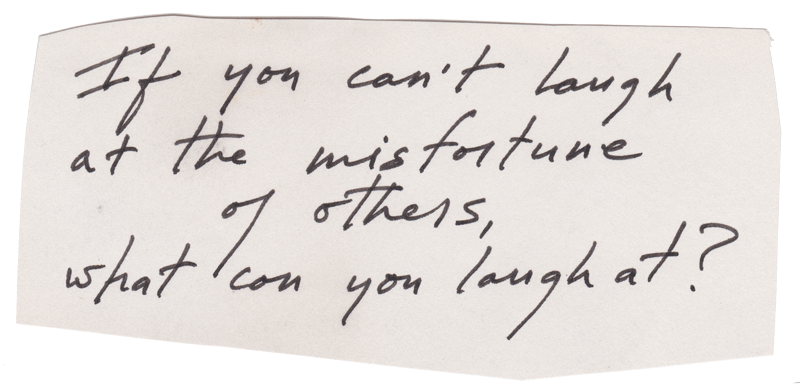 If you can't laugh
at the misfortune
of others,
what can you laugh at?